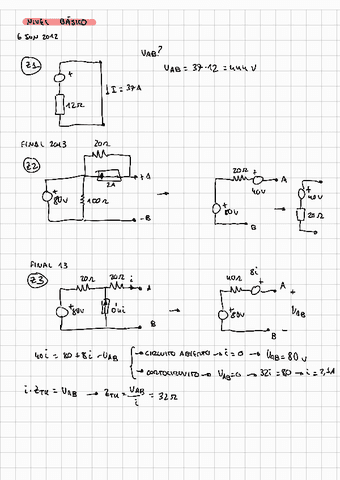 NIVEL BÁSICO
6 JUN 2012
UAB?
Z1
+
I = 37A
UAB = 37·12 = 444 V
12Ω
FINAL 2013
Z2
20Ω
+A
2A
+
80V
100Ω
-B
20Ω
+
40V
A
+
80V
B
+
40V
20Ω
FINAL 13
Z3
20Ω
20Ω
i
A
+
80V
0'4i
B
40Ω
8i
+
A
+
80V
UAB
B
-
40i = 80 + 8i - UAB
CIRCUITO ABIERTO → i = 0 → UAB = 80 V
CORTOCIRCUITO → UAB = 0 → 32i = 80 → i =
i · ZTH = UAB → ZTH = UAB/i = 32Ω